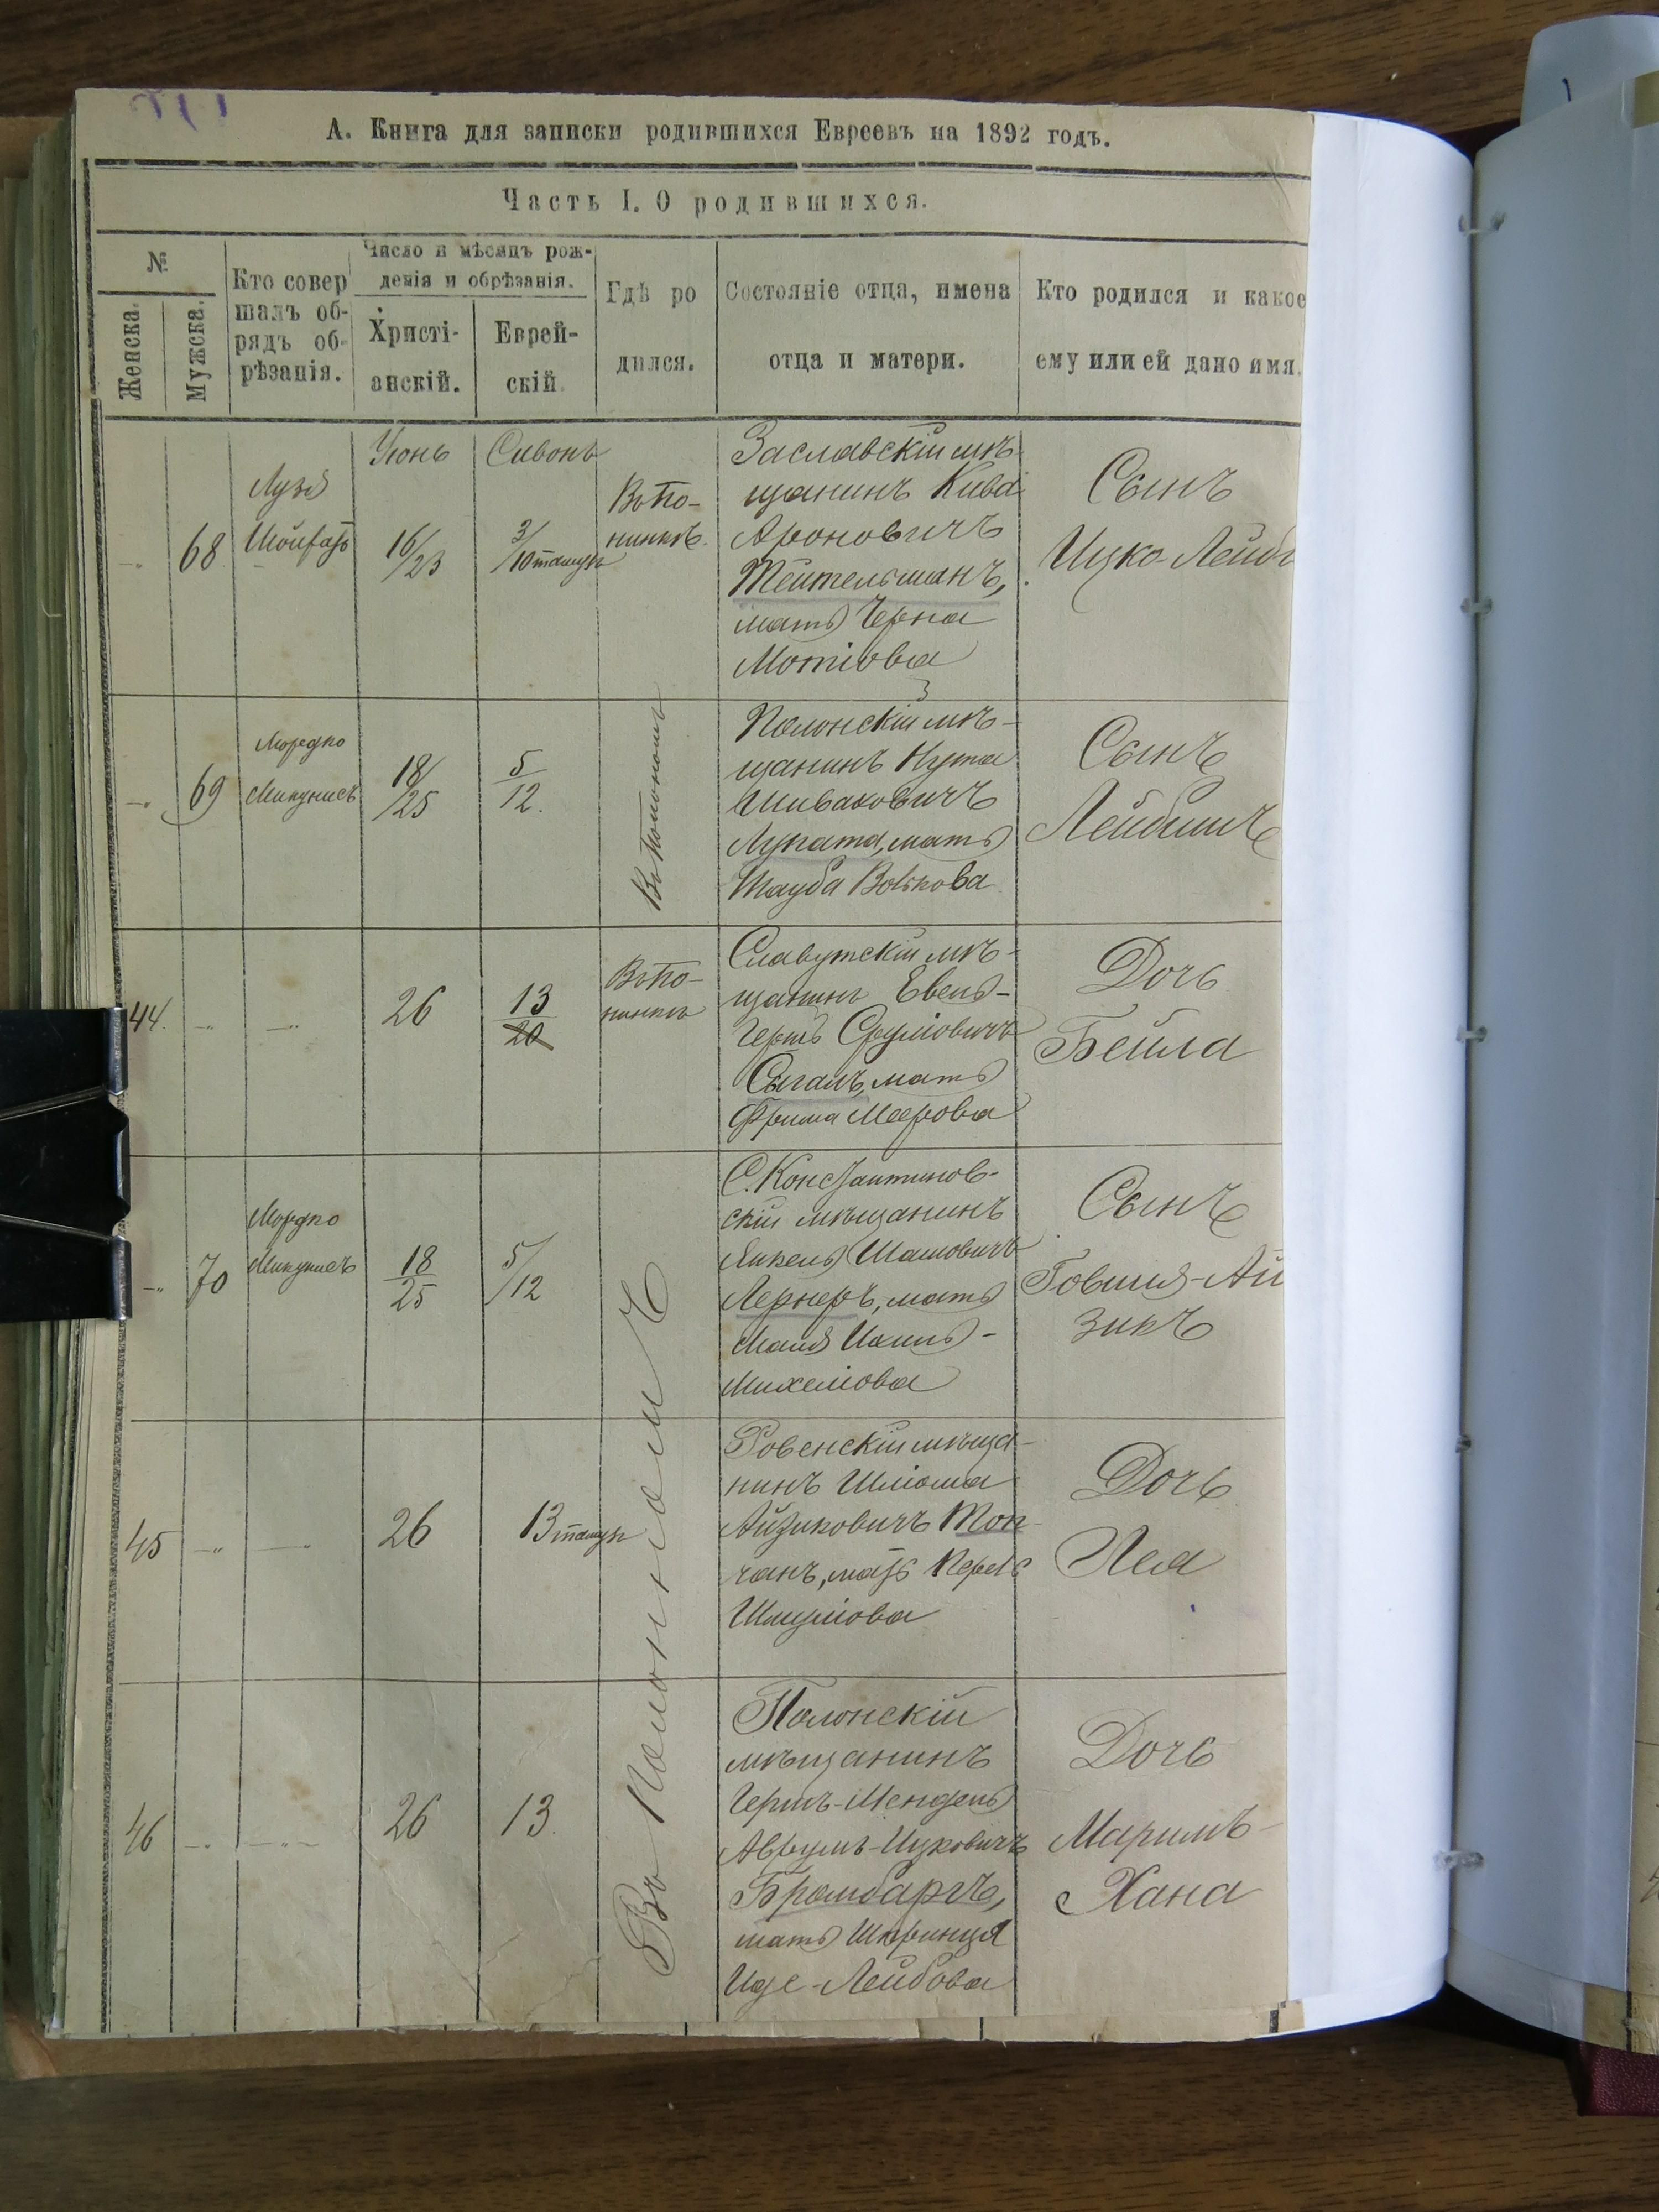 А. Книга для записки родившихся Евреевъ на 1892 годъ.
Часть I. О родившихся.
№
Женска.
Мужска.
Кто совер
шалъ об-
рядъ об-
рѣзанія.
Число и мѣсяцъ рож-
денія и обрѣзанія.
Христі-
анскій.
Еврей-
скій
Гдѣ ро
дился.
Состояніе отца, имена
отца и матери.
Кто родился и какое
ему или ей дано имя.
68
Іюнь
16/23
Сивонь
3/10 тамуз
Заславскій мѣ-
щанинъ Кива
Ароновичъ
Тейтельманъ,
мать Черна
Мотіова
Сынъ
Ицко-Лейб
69
Мордко
Микунисъ
18/25
5/12.
Въ Полономъ
Полонскій мѣ-
щанинъ Нута
Шиваховичъ
Лупата, мать
Тауба Волькова
Сынъ
Лейбишъ
44.
26
13
20
Славутскій мѣ-
щанинъ Евель-
Гершъ Сруліовичъ
Сыгалъ, мать
Фрима Меерова
Дочь
Бейла
70
Мордко
Микунисъ
18/25
5/12
С. Константинов-
скій мѣщанинъ
Янкель
Лернеръ, мать
Михеліова
Сынъ
Говшія-Ай
зикъ
Въ Полономъ
45
26
13 тамуз
Ровенскій мѣща-
нинъ Шліома
Айзиковичъ Топ-
чанъ, мать Перель
Шмуліова
Дочь
Лея
46
26
13.
Полонскій
мѣщанинъ
Гершъ-Мендель
Аврумъ-Ицковичъ
Бромбаргъ,
мать Шпринця
Иде-Лейбова
Дочь
Маримъ-
Хана